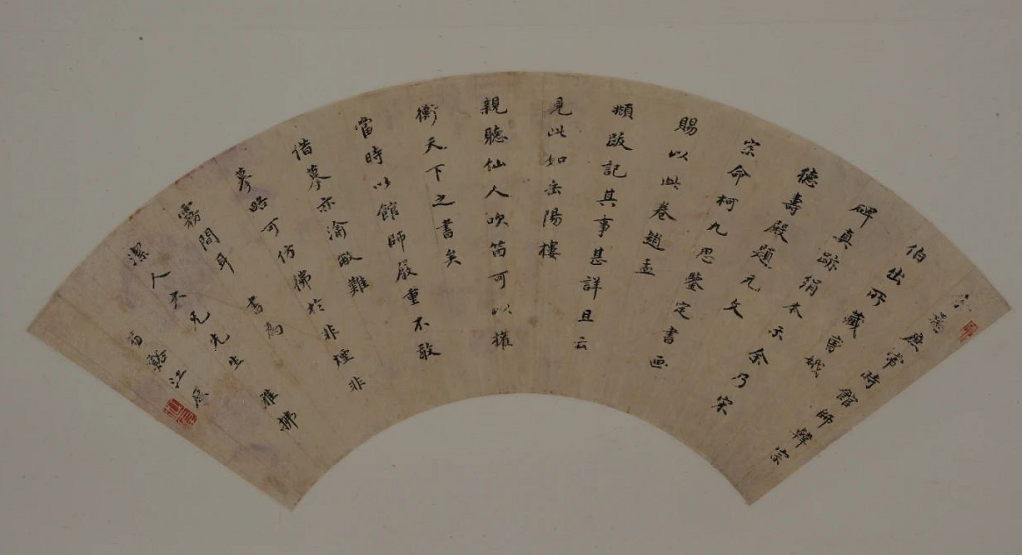 余庶常時館師韓宗
伯出所藏曹娥
碑真跡絹本示余乃宋
德壽殿題元文
宗命柯九思鑒定書画
賜以此卷趙孟
頫跋記其事甚詳且云
見此如岳陽樓
親聽仙人吹笛可以權
衡天下之書矣
當時以館師嚴重不敢
借摹亦渝敝難
摹略可仿佛於非煙非
霧間耳
書為
潔人大兄先生 雅拂